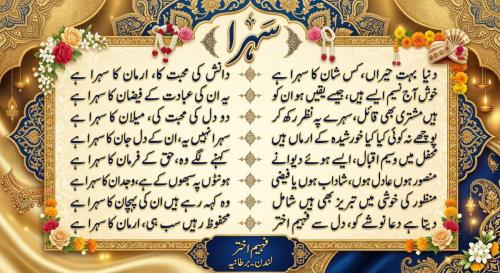 سہرا
دنیا بہت حیراں، کس شان کا سہرا ہے
دانش کی محبت کا، ارمان کا سہرا ہے
خوش آج نسیم ایسے ہیں، جیسے یقیں ہو ان کو
یہ ان کی عبادت کے فیضان کا سہرا ہے
ہیں مشتری بھی قائل، سہرے پہ نظر رکھ کر
دو دل کی محبت کی، میلان کا سہرا ہے
پوچھے نہ کوئی کیا کیا خورشیدہ کے ارماں ہیں
سہرا نہیں یہ، ان کے دل جان کا سہرا ہے
محفل میں وسیم اقبال، ایسے ہوئے دیوانے
کہنے لگے وہ، حق کے فرمان کا سہرا ہے
منصور ہوں عادل ہوں، شاداب ہوں یا فیضی
ہونٹوں پہ سبھوں کے ہے، وجدان کا سہرا ہے
منظور کی خوشی میں تبریز بھی ہیں شامل
وہ کہہ رہے ہیں ان کی پہچان کا سہرا ہے
دیتا ہے دعا نوشے کو، دل سے فہیم اختر
محفوظ رہیں سب ہی، ارمان کا سہرا ہے
فہیم اختر
لندن۔برطانیہ